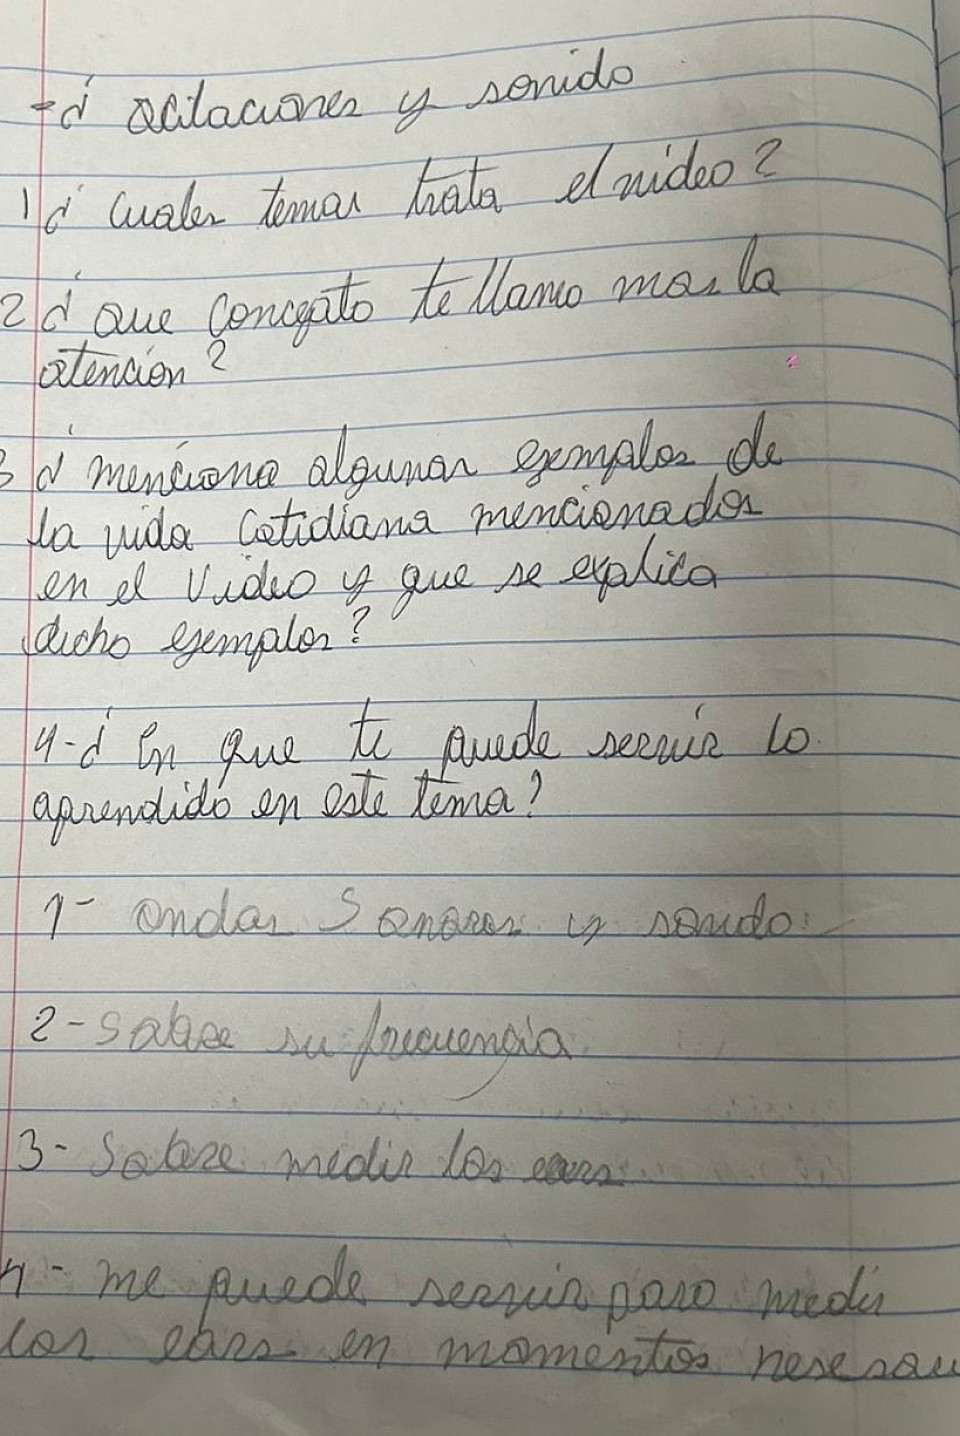 -¿ ocilaciones y sonido
1 ¿ cuales temas trata el video?
2 ¿ que concepto te llamo mas la
atención?
3 ¿ menciona algunas ejemplos de
la vida cotidiana mencionados
en el video y que se explica
dicho ejemplos?
4-¿ En que te puede servir lo
aprendido en este tema?
1- ondas sonoras y sonido.
2- Sobre su frecuencia
3- Sobre medir los
4- me puede servir para medir
los ears en momentos